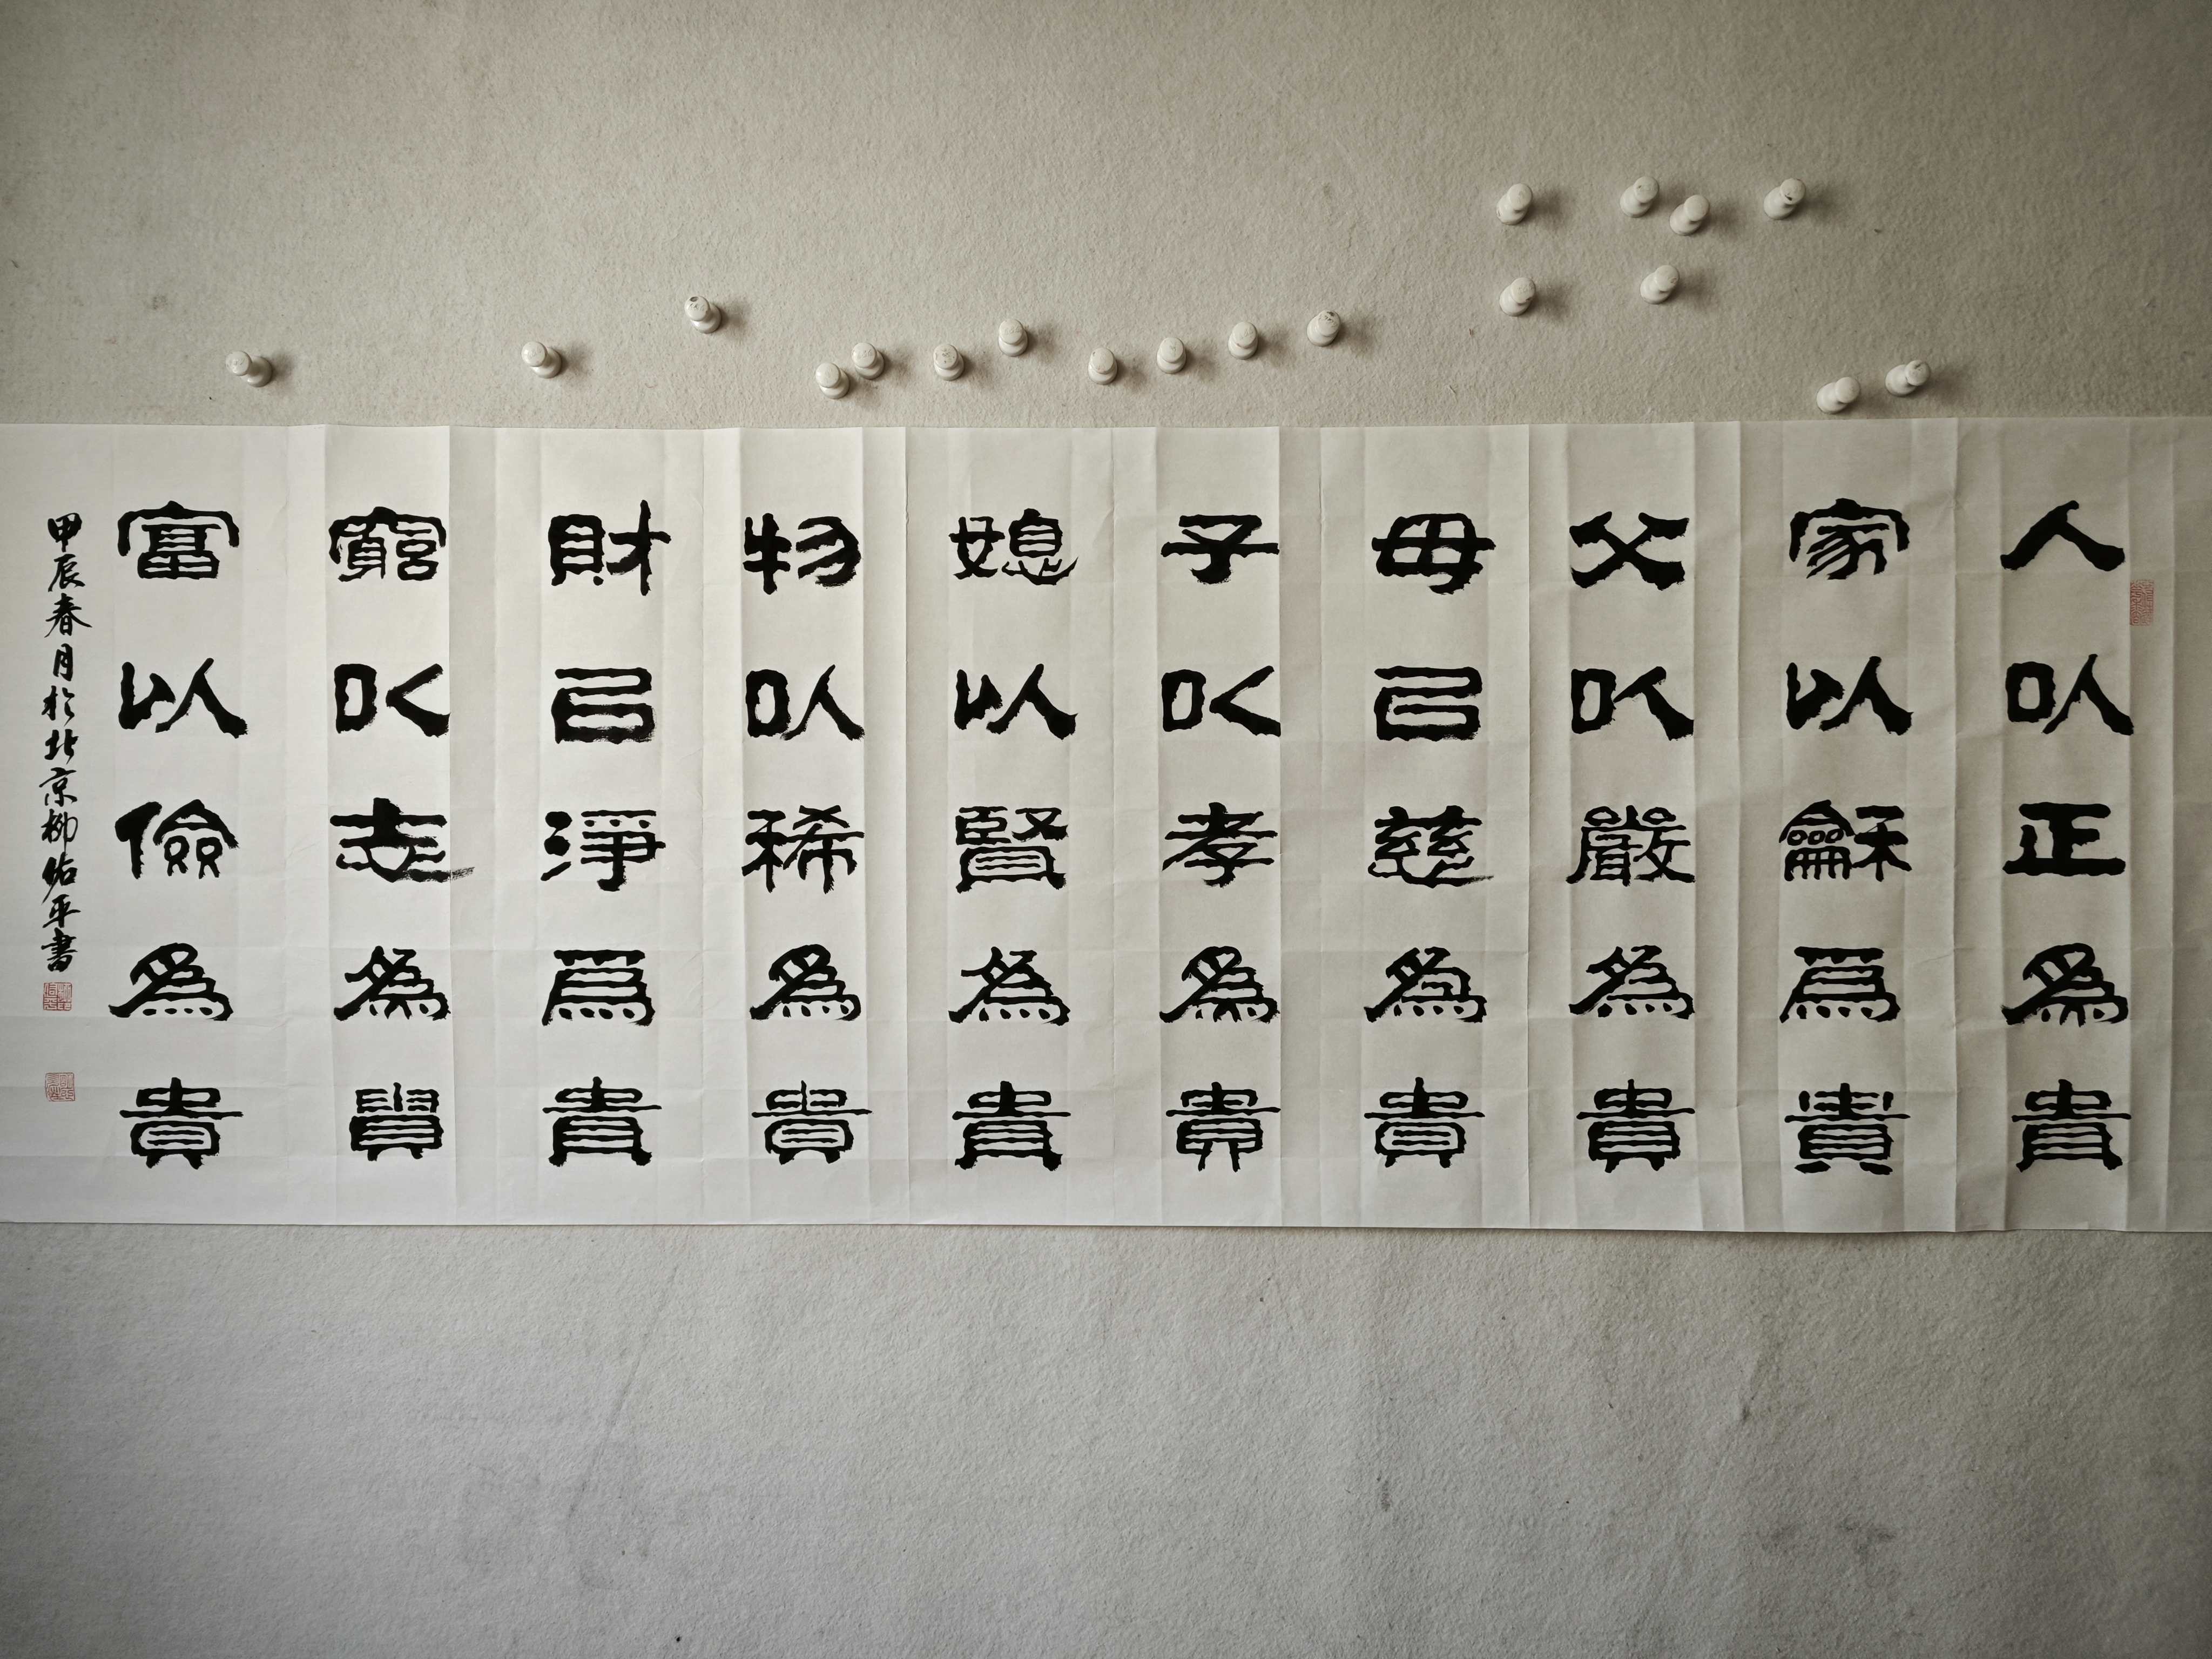 人以正為貴
家以龢為貴
父以嚴為貴
母以慈為貴
子以孝為貴
媳以賢為貴
物以稀為貴
財以淨為貴
窮以志為貴
富以儉為貴
甲辰春月於北京柳佑平書